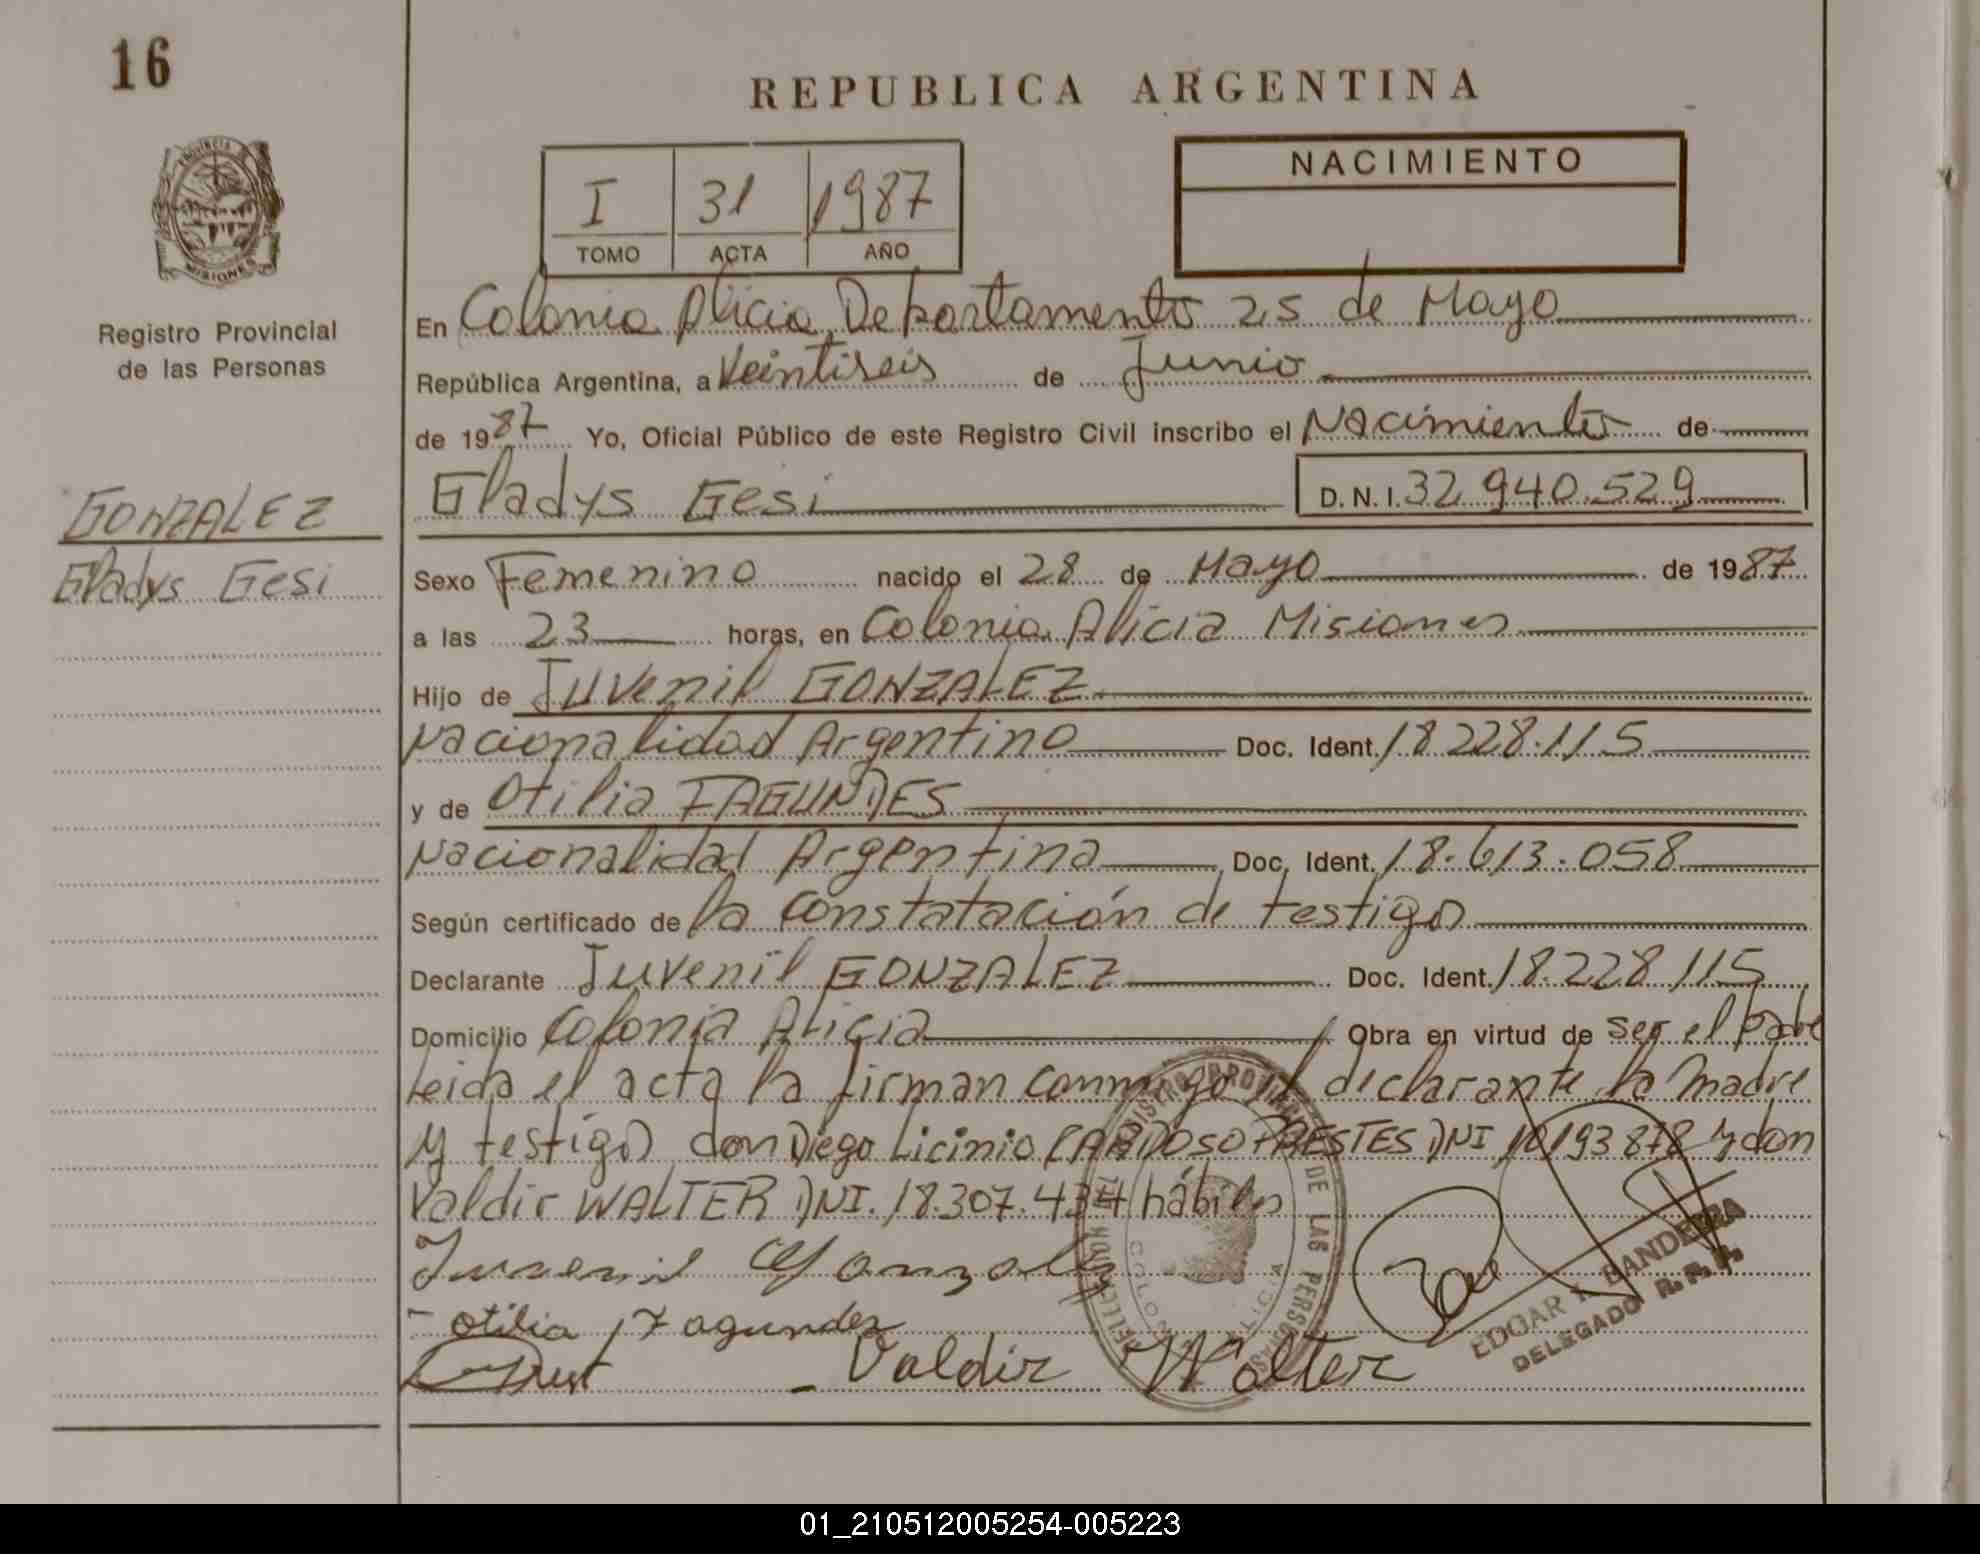 16
REPUBLICA ARGENTINA
NACIMIENTO
I 31 1987
TOMO ACTA AÑO
MISIONES
Registro Provincial
de las Personas
GONZALEZ
Gladys Gesi
En Colonia Alicia Departamento 25 de Mayo
República Argentina, a Veintiseis de Junio
de 1987 Yo, Oficial Público de este Registro Civil inscribo el Nacimiento de
Gladys Gesi D.N.I. 32.940.529
Sexo Femenino nacido el 28 de Mayo de 1987
a las 23 horas, en Colonia Alicia Misiones
Hijo de Juvenil GONZALEZ
Nacionalidad Argentino Doc. Ident. 18.228.115
y de Otilia FAGUNDES
Nacionalidad Argentina Doc. Ident. 18.613.058
Según certificado de la constatación de testigos
Declarante Juvenil GONZALEZ Doc. Ident. 18.228.115
Domicilio Colonia Alicia Obra en virtud de ser el padre
Leida el acta la firman conmigo el declarante la madre
y testigos don Diego Licinio CARDOSO PRESTES DNI 10193878 y don
Valdir WALTER DNI. 18.307.434 hábiles
Juvenil Gonzalez
Otilia Fagundez
Valdir Walter
REGISTRO PROVINCIAL DE LAS PERSONAS
COLONIA ALICIA
EDGAR BANDEIRA
DELEGADO R.P.P.
01_210512005254-005223